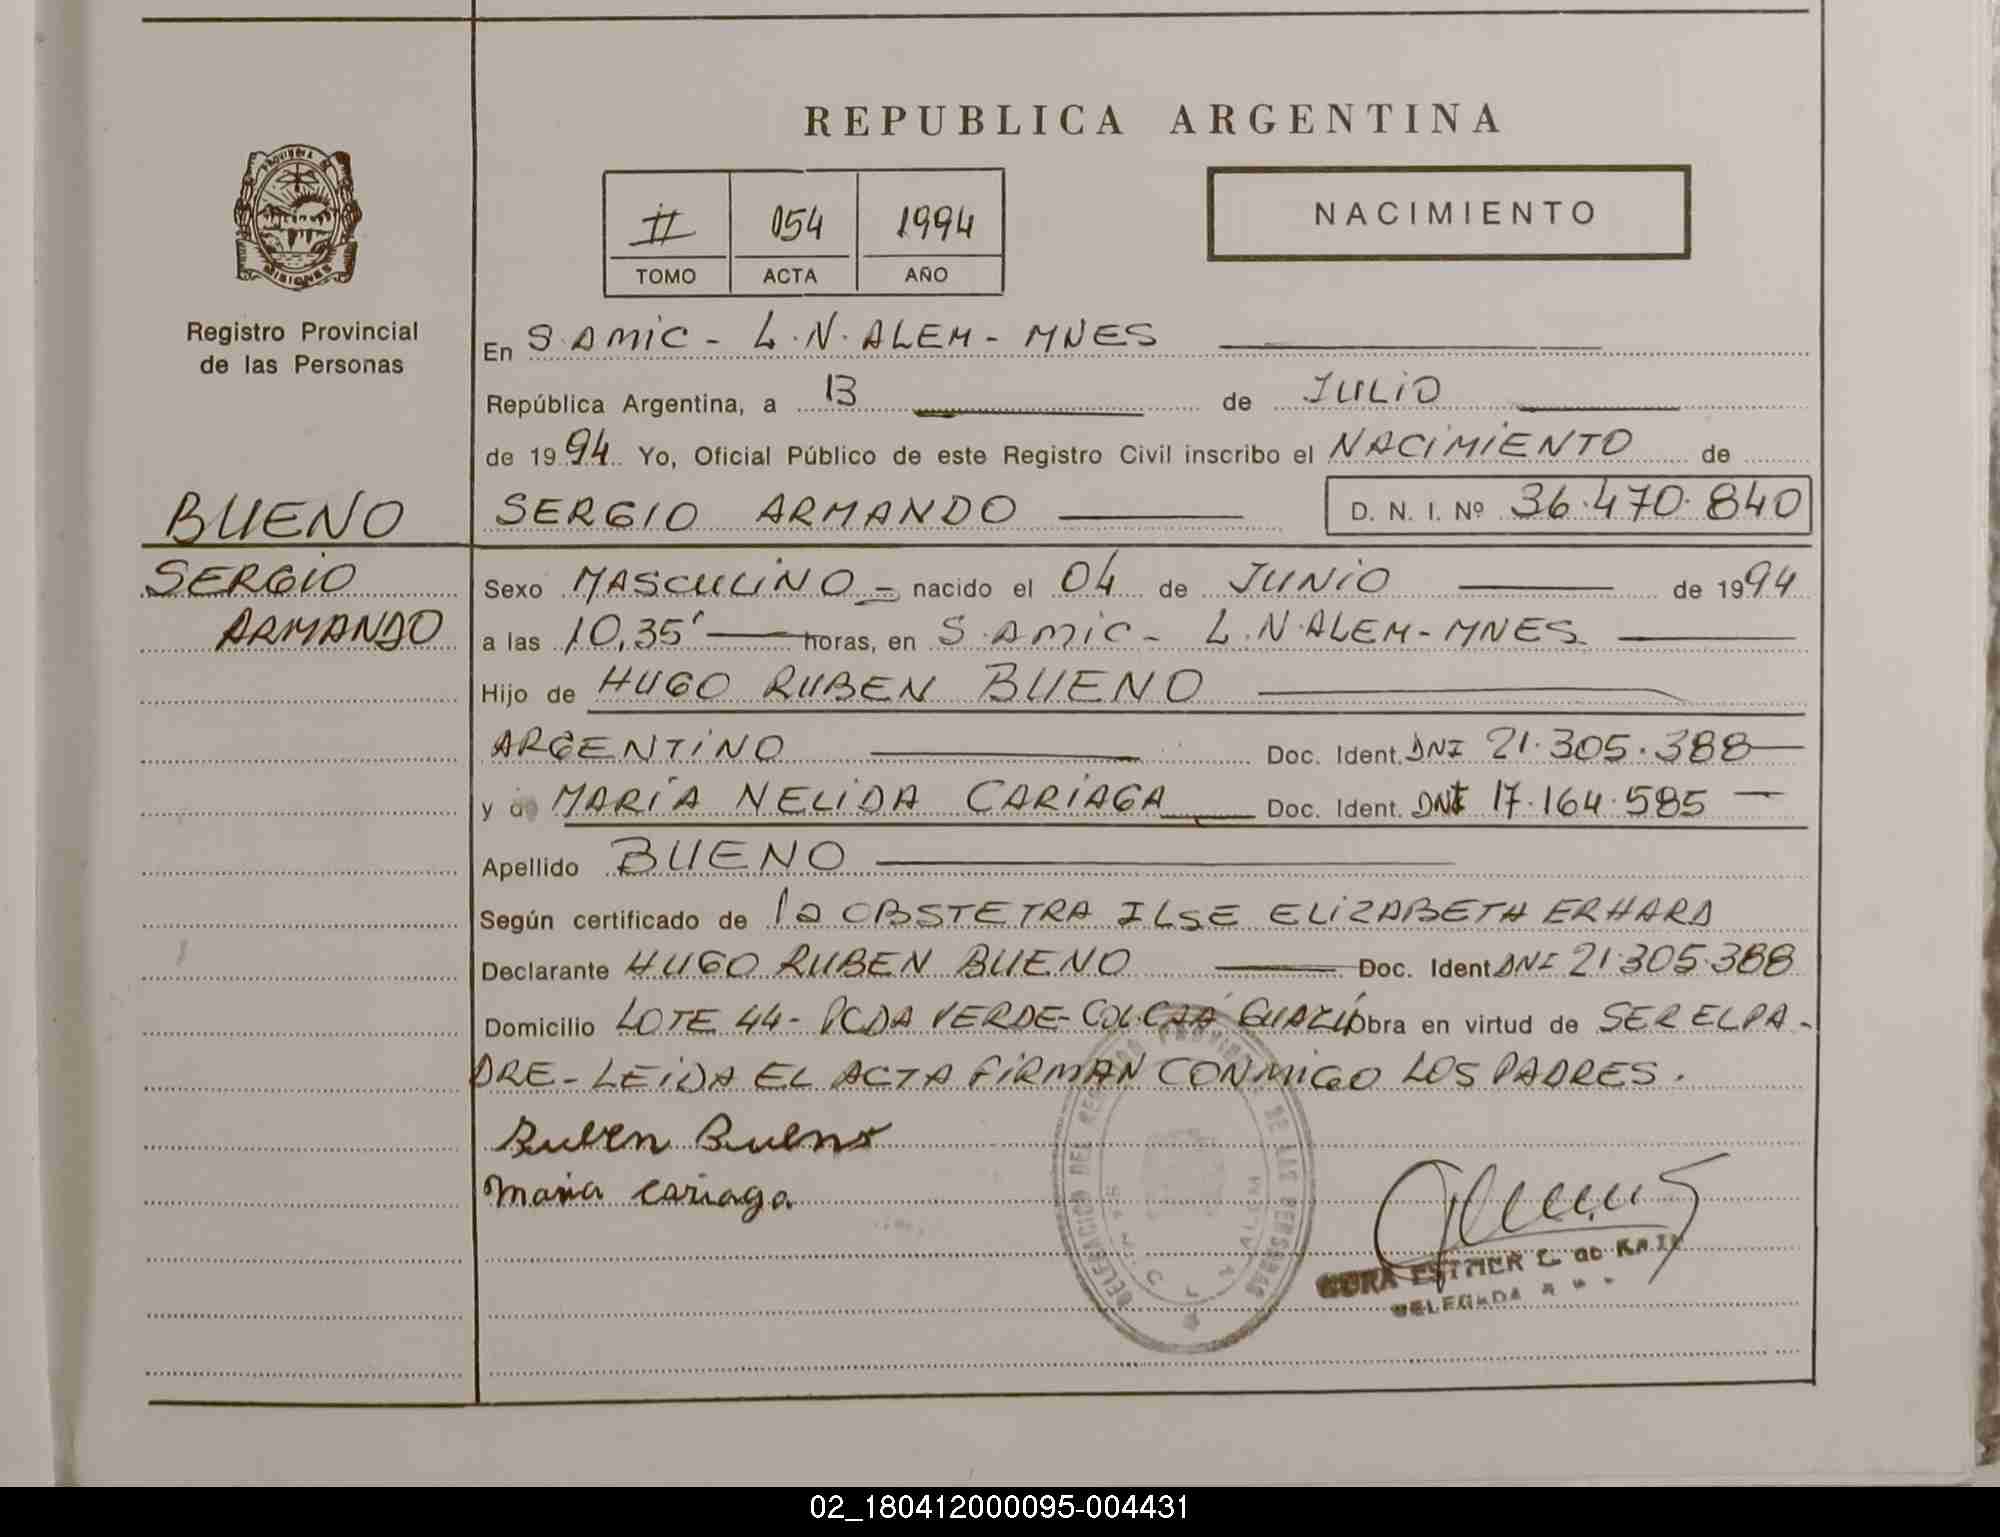 REPUBLICA ARGENTINA
PROVINCIA DE
MISIONES
II 054 1994
TOMO ACTA AÑO
NACIMIENTO
Registro Provincial
de las Personas
En S.AMIC - L.N.ALEM - MNES
República Argentina, a 13 de JULIO
de 1994. Yo, Oficial Público de este Registro Civil inscribo el NACIMIENTO de
BUENO
SERGIO ARMANDO D. N. I. Nº 36.470.840
SERGIO
ARMANDO
Sexo MASCULINO - nacido el 04 de JUNIO de 1994
a las 10,35' horas, en S.AMIC - L.N.ALEM - MNES
Hijo de HUGO RUBEN BUENO
ARGENTINO Doc. Ident. DNI 21.305.388
y MARIA NELIDA CARIAGA Doc. Ident. DNI 17.164.585
Apellido BUENO
Según certificado de la OBSTETRA ILSE ELIZABETH ERHARD
Declarante HUGO RUBEN BUENO Doc. Ident DNI 21.305.388
Domicilio LOTE 44 - PCDA VERDE - COL. CAÁ GUAZÚ Obra en virtud de SER EL PA-
DRE - LEIDA EL ACTA FIRMAN CONMIGO LOS PADRES.
Ruben Bueno
Maria Cariaga
DELEGACION DEL REGISTRO PROVINCIAL DE LAS PERSONAS
ESTHER
DELEGADA
02_180412000095-004431